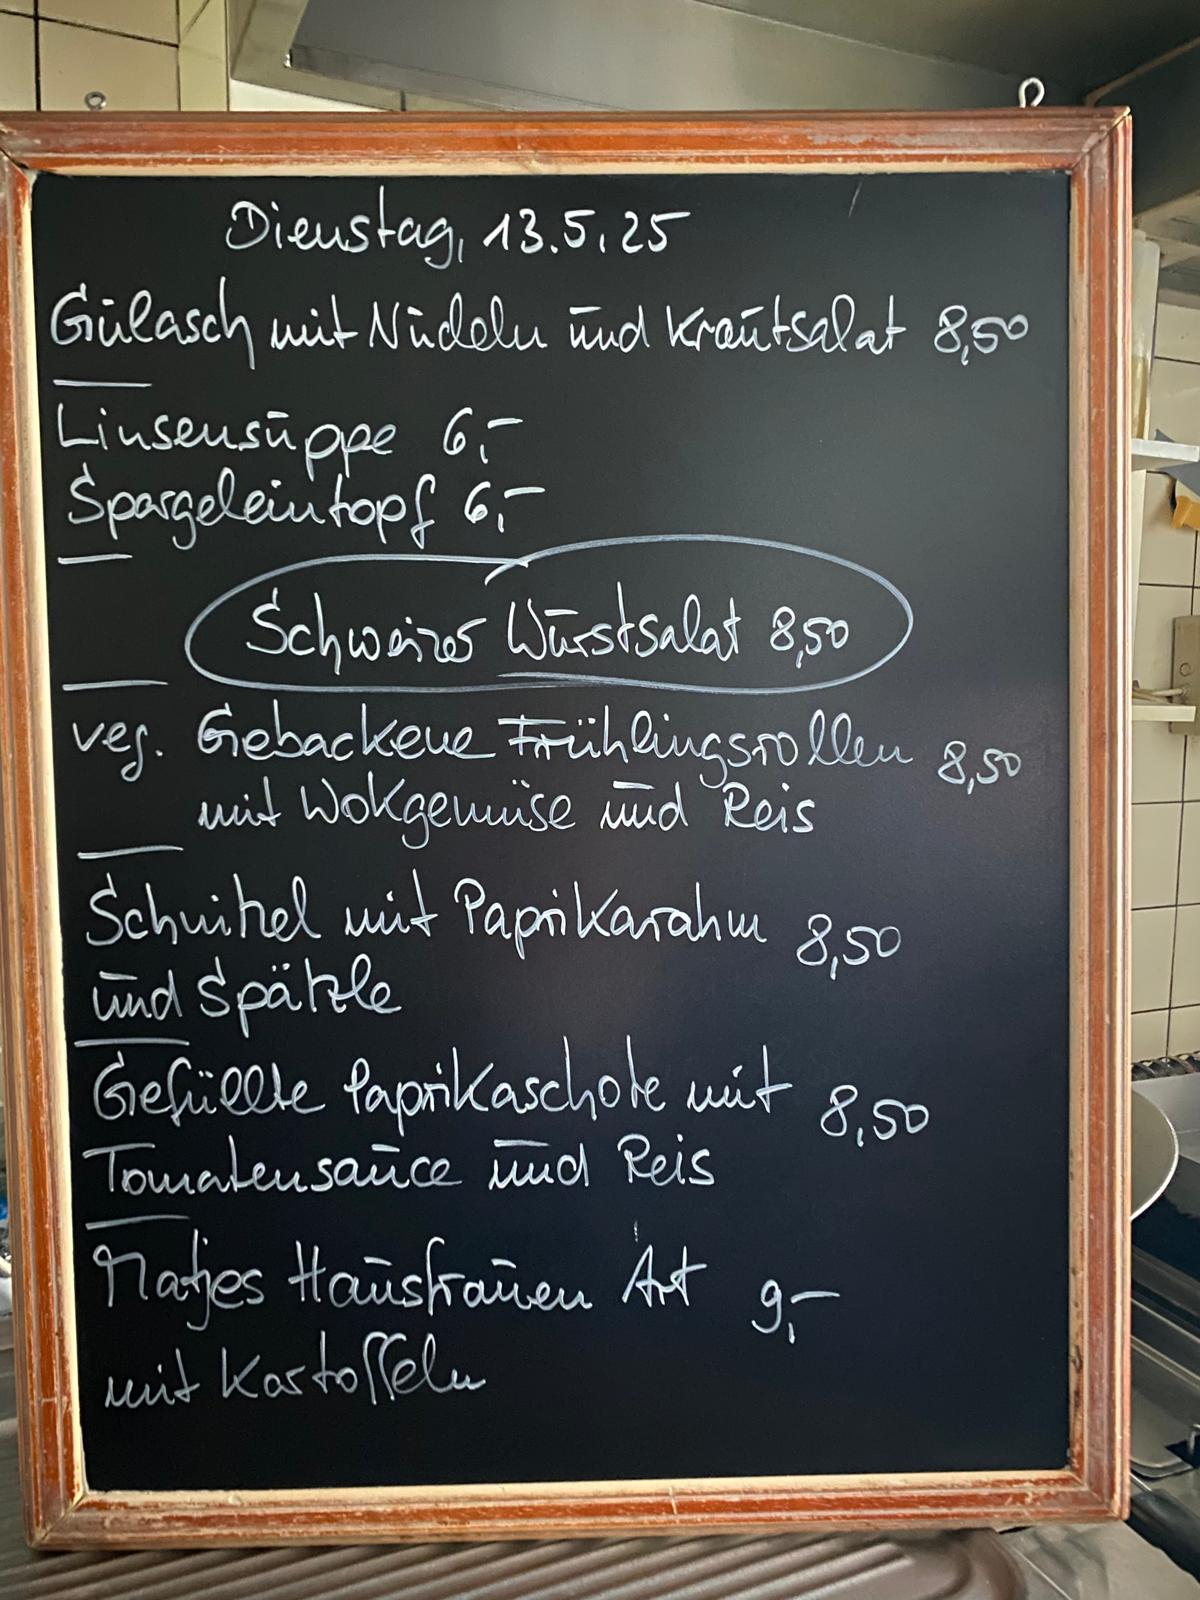 Dienstag, 13.5.25
Gulasch mit Nudeln und Krautsalat 8,50
Linsensuppe 6,-
Spargeleintopf 6,-
Schweizer Wurstsalat 8,50
veg. Gebackene Frühlingsrollen 8,50
mit Wokgemüse und Reis
Schnitzel mit Paprikarahm 8,50
und Spätzle
Gefüllte Paprikaschote mit 8,50
Tomatensauce und Reis
Matjes Hausfrauen Art 9,-
mit Kartoffeln